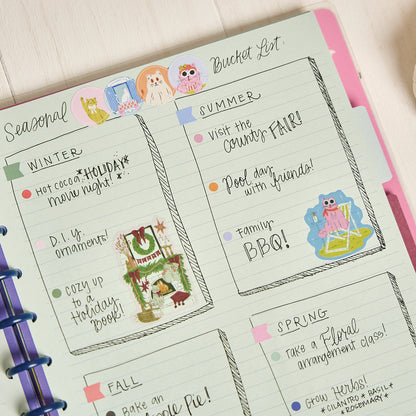 Seasonal Bucket List:
WINTER
Hot cocoa *HOLIDAY*
movie night!
D.I.Y.
ornaments!
Cozy up
to a
Holiday
Book!
SUMMER
Visit the
country FAIR!
Pool day
with friends!
Family
BBQ!
FALL
Bake an
Pie!
SPRING
Take a Floral
arrangement class!
Grow Herbs!
*CILANTRO *BASIL*
ROSEMARY*